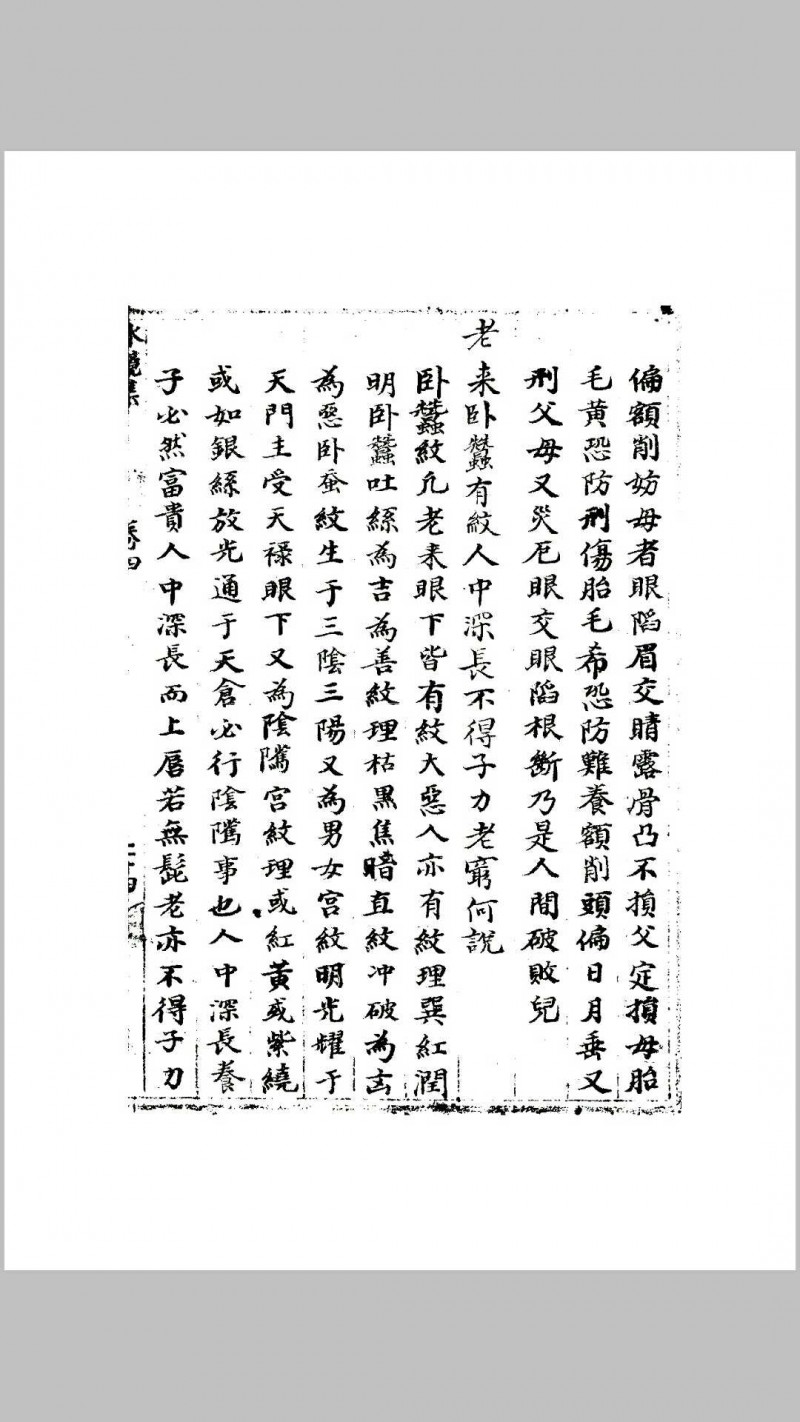 偏額削妨母者眼陷眉交睛露骨凸不損父定損母胎
毛黃恐防刑傷胎毛希恐防難養額削頭偏日月垂又
刑父母又災厄眼交眼陷根斷乃是人間破敗兒
老来卧蠶有紋人中深長不得子力老窮何說
卧蠶紋凢老来眼下皆有紋大惡人亦有紋理巽紅潤
明卧蠶吐絲為吉為善紋理枯黑焦暗直紋冲破為凶
為惡卧蚕紋生于三陰三陽又為男女宮紋明光耀于
天門主受天祿眼下又為陰隲宮紋理或紅黃或紫繞
或如銀絲放光通于天倉必行陰隲事也人中深長養
子必然富貴人中深長而上唇若無髭老亦不得子力
水鏡集 卷四 二十四